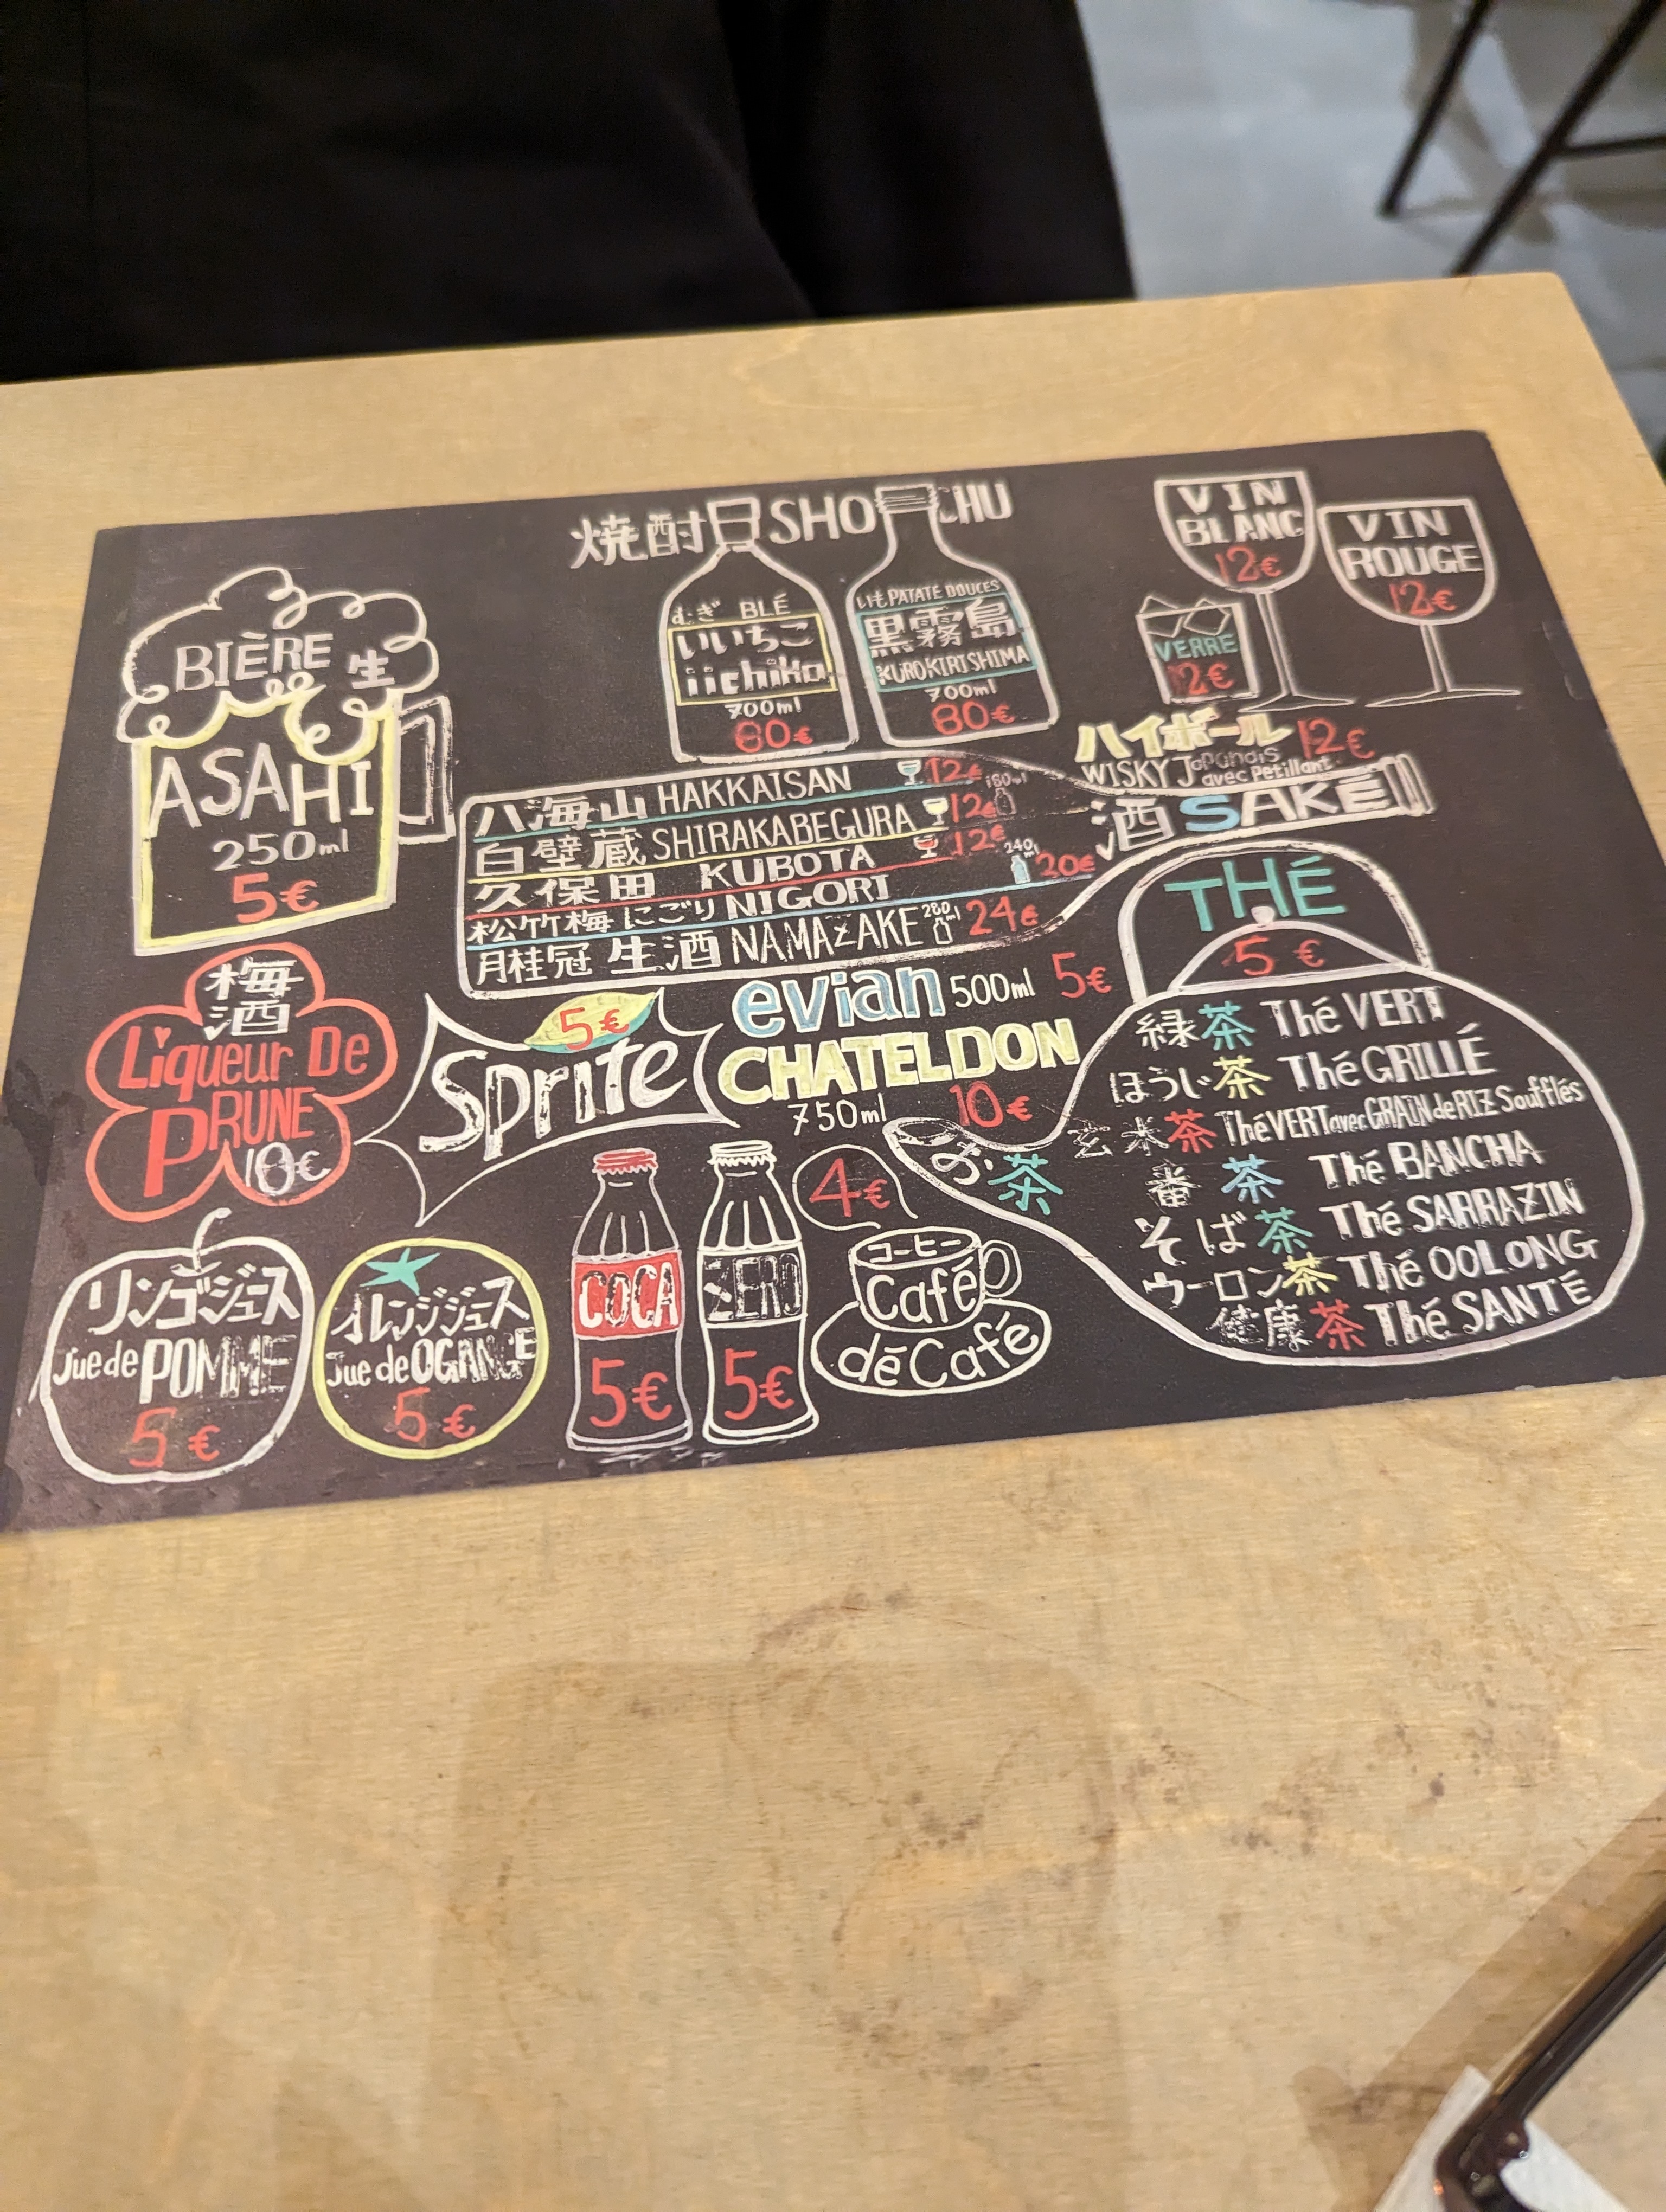 焼酎 SHOCHU
むぎ BLÉ
いいちこ
iichiko
700ml
80€
いも PATATE DOUCES
黒霧島
KUROKIRISHIMA
700ml
80€
VIN
BLANC
12€
VIN
ROUGE
12€
VERRE
12€
ハイボール 12€
WISKY Japonais
avec Petillant
BIÈRE 生
ASAHI
250ml
5€
酒 SAKÉ
八海山 HAKKAISAN 12€ 180ml
白壁蔵 SHIRAKABEGURA 12€
久保田 KUBOTA 12€
松竹梅 にごり NIGORI 240ml 20€
月桂冠 生酒 NAMAZAKE 280ml 24€
梅
酒
Liqueur De
PRUNE
10€
5€
Sprite
evian 500ml 5€
CHATELDON
750ml 10€
THÉ
5€
お茶
緑茶 Thé VERT
ほうじ茶 Thé GRILLÉ
玄米茶 Thé VERT avec GRAIN de RIZ Soufflés
番茶 Thé BANCHA
そば茶 Thé SARRAZIN
ウーロン茶 Thé OOLONG
健康茶 Thé SANTÉ
リンゴジュース
Jue de POMME
5€
オレンジジュース
Jue de OGANGE
5€
COCA
5€
ZERO
5€
4€
コーヒー
Café
déCafé